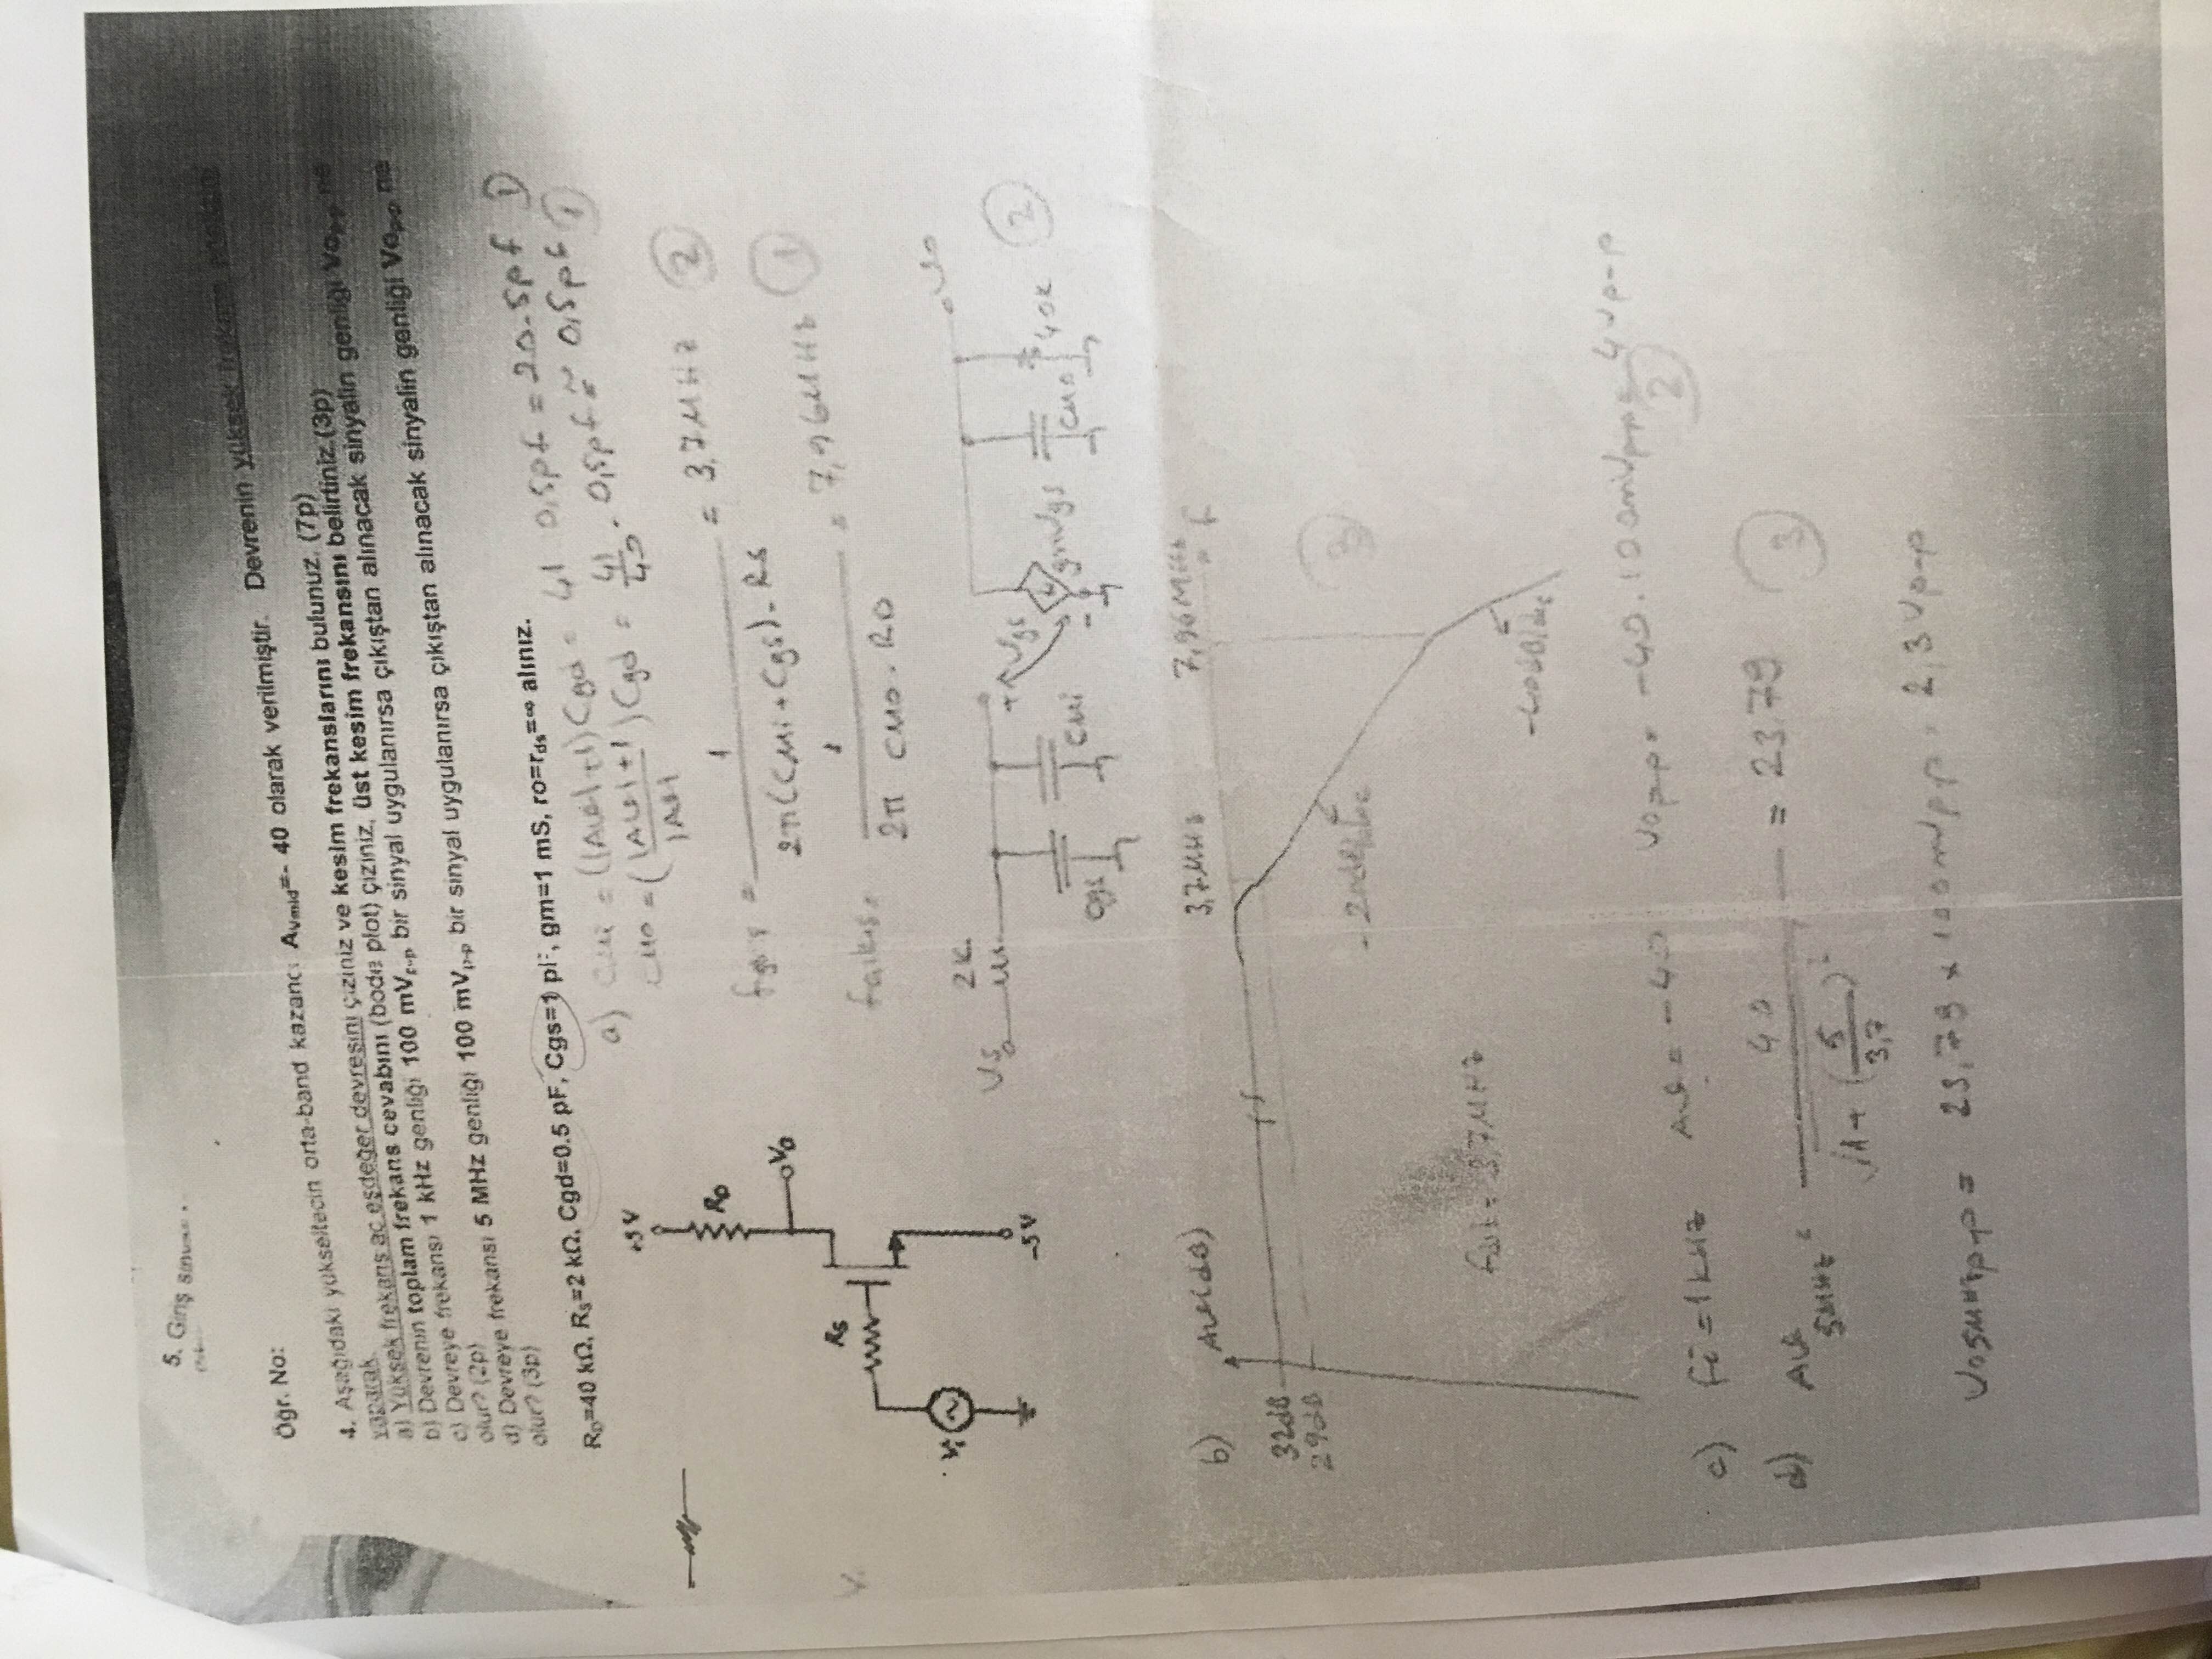 5. Giriş
Öğr. No:
4. Aşağıdaki yükseltecin orta-band kazancı AVmid=- 40 olarak verilmiştir. Devrenin yüksek frekans
yaparak,
a) Yüksek frekans ac eşdeğer devresini çiziniz ve kesim frekanslarını bulunuz. (7p)
b) Devrenin toplam frekans cevabını (bode plot) çiziniz, üst kesim frekansını belirtiniz.(3p)
c) Devreye frekansı 1 kHz genliği 100 mVp-p bir sinyal uygulanırsa çıkıştan alınacak sinyalin genliği Vop-p ne
olur? (2p)
d) Devreye frekansı 5 MHz genliği 100 mVp-p bir sinyal uygulanırsa çıkıştan alınacak sinyalin genliği Vop-p ne
olur? (3p)
RD=40 kΩ, RS=2 kΩ, Cgd=0.5 pF, Cgs=1 pF, gm=1 mS, ro=rds=∞ alınız.
a) CMi = (|Av|+1) Cgd = 41 0,5pf = 20.5pf 1
CMo = (|Av|+1 / |Av|) Cgd = 41/40 . 0,5pf ≅ 0,5pf 1
+5V
RD
Vo
RS
Vi
-5V
= 1 / 2π(CMi+Cgs).Rs = 3,7MHz 2
= 1 / 2π CMo.RD = 7,96MHz 1
Vs 2k Cgs CMi + Vgs - gmVgs CMo 40k Vo 2
b) Av(dB) 3,7MHz 7,96MHz f
32dB
29dB
-20dB/dec 3
= 3,7MHz
-40dB/dec
c) fi = 1kHz Av = -40 Vop-p = -40.100mVp-p = 4Vp-p 2
d) Av5MHz = 40 / √1+(5/3,7)² = 23,79 3
Vo5MHzp-p = 23,79 x 100mVp-p = 2,3Vp-p